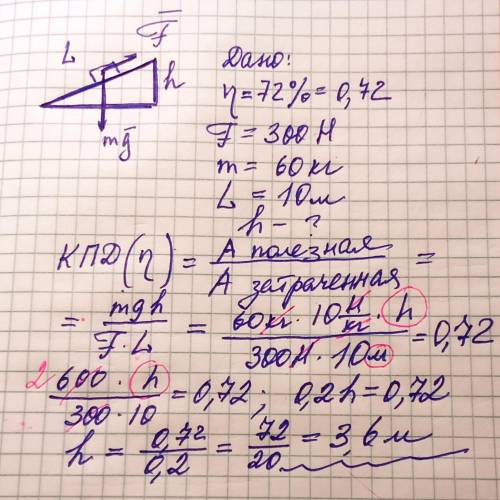 L F
h
mg
Дано:
η = 72% = 0,72
F = 300 Н
m = 60 кг
L = 10 м
h - ?
КПД (η) = А полезная / А затраченная =
= mgh / F · L = 60 кг · 10 Н/кг · h / 300 Н · 10 м = 0,72
2 600 · h / 300 · 10 = 0,72; 0,2h = 0,72
h = 0,72 / 0,2 = 72 / 20 = 3,6 м